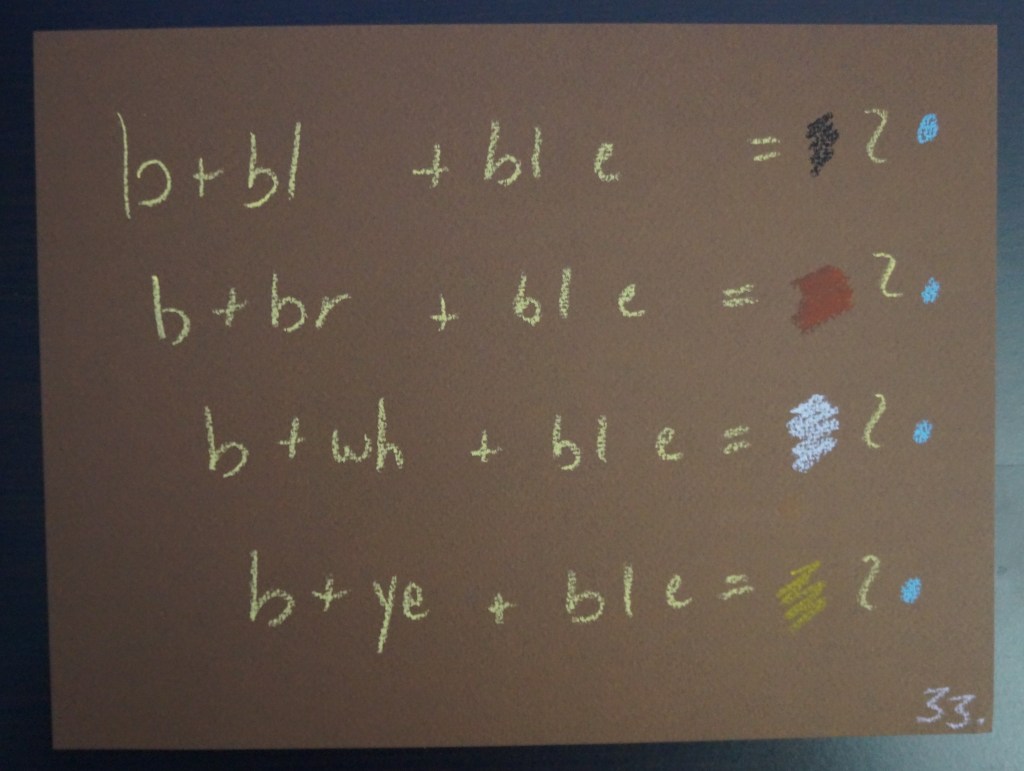 b + bl + bl e = ?
b + br + bl e = ?
b + wh + bl e = ?
b + ye + bl e = ?
33.